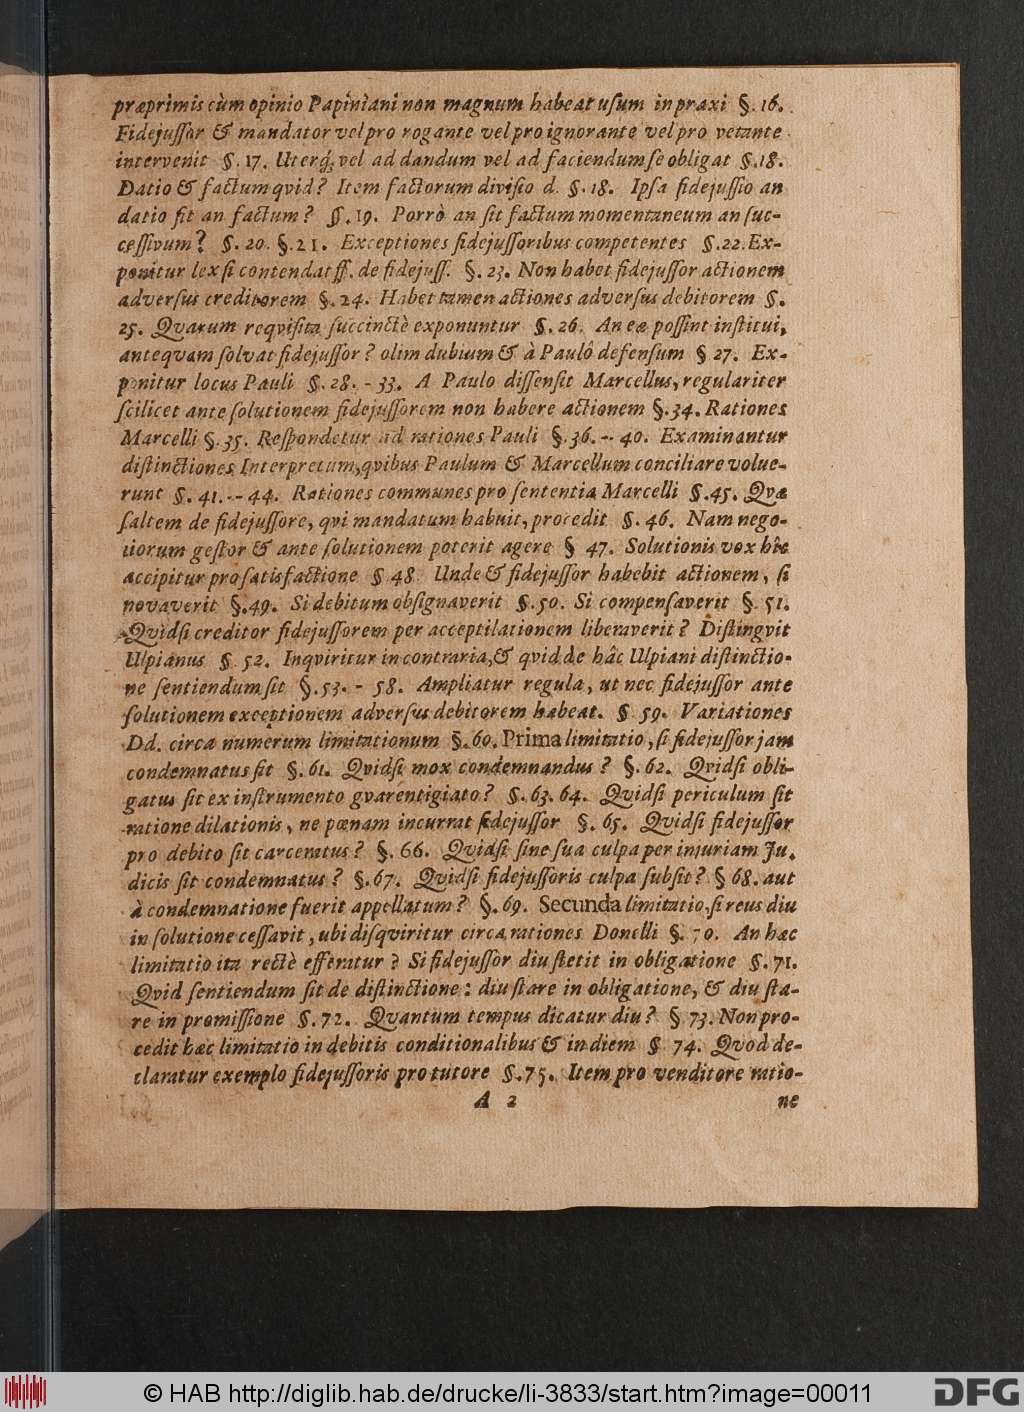 præprimis cùm opinio Papiniani non magnum habeat uſum in praxi §. 16.
Fidejuſſor & mandator vel pro rogante vel pro ignorante vel pro vetante
intervenit §. 17. Uterq; vel ad dandum vel ad faciendum ſe obligat §. 18.
Datio & factum qvid? Item factorum diviſio d. §. 18. Ipſa fidejuſſio an
datio ſit an factum? §. 19. Porrò an ſit factum momentaneum an ſuc-
ceſſivum? §. 20. §. 21. Exceptiones fidejuſſoribus competentes §. 22. Ex-
ponitur lex ſi contendat ff. de fidejuſſ. §. 23. Non habet fidejuſſor actionem
adverſus creditorem §. 24. Habet tamen actiones adverſus debitorem §.
25. Qvarum reqviſita ſuccinctè exponuntur §. 26. An eæ poſſint inſtitui,
anteqvam ſolvat fidejuſſor? olim dubium & à Paulô defenſum § 27. Ex-
ponitur locus Pauli §. 28. - 33. A Paulo diſſenſit Marcellus, regulariter
ſcilicet ante ſolutionem fidejuſſorem non habere actionem §. 34. Rationes
Marcelli §. 35. Reſpondetur ad rationes Pauli §. 36. -- 40. Examinantur
diſtinctiones Interpretum, qvibus Paulum & Marcellum conciliare volue-
runt §. 41. -- 44. Rationes communes pro ſententia Marcelli §. 45. Qvæ
ſaltem de fidejuſſore, qvi mandatum habuit, procedit §. 46. Nam nego-
tiorum geſtor & ante ſolutionem poterit agere § 47. Solutionis vox hîc
accipitur pro ſatisfactione § 48. Unde & fidejuſſor habebit actionem, ſi
novaverit §. 49. Si debitum obſignaverit §. 50. Si compenſaverit §. 51.
Qvid ſi creditor fidejuſſorem per acceptilationem liberaverit? Diſtingvit
Ulpianus §. 52. Inqviritur in contraria, & qvid de hâc Ulpiani diſtinctio-
ne ſentiendum ſit §. 53. - 58. Ampliatur regula, ut nec fidejuſſor ante
ſolutionem exceptionem adverſus debitorem habeat. § 59. Variationes
Dd. circa numerum limitationum §. 60. Prima limitatio, ſi fidejuſſor jam
condemnatus ſit §. 61. Qvid ſi mox condemnandus? §. 62. Qvid ſi obli-
gatus ſit ex inſtrumento gvarentigiato? §. 63. 64. Qvid ſi periculum ſit
ratione dilationis, ne pœnam incurrat fidejuſſor §. 65. Qvid ſi fidejuſſor
pro debito ſit carceratus? §. 66. Qvid ſi ſine ſua culpa per injuriam Ju-
dicis ſit condemnatus? §. 67. Qvid ſi fidejuſſoris culpa ſubſit? § 68. aut
à condemnatione fuerit appellatum? §. 69. Secunda limitatio, ſi reus diu
in ſolutione ceſſavit, ubi diſqviritur circa rationes Donelli §. 70. An hæc
limitatio ita rectè efferatur? Si fidejuſſor diu ſtetit in obligatione §. 71.
Qvid ſentiendum ſit de diſtinctione: diu ſtare in obligatione, & diu ſta-
re in promiſſione §. 72. Qvantum tempus dicatur diu? § 73. Non pro-
cedit hæc limitatio in debitis conditionalibus & in diem § 74. Qvod de-
claratur exemplo fidejuſſoris pro tutore §. 75. Item pro venditore ratio-
A 2 ne
© HAB http://diglib.hab.de/drucke/li-3833/start.htm?image=00011
DFG